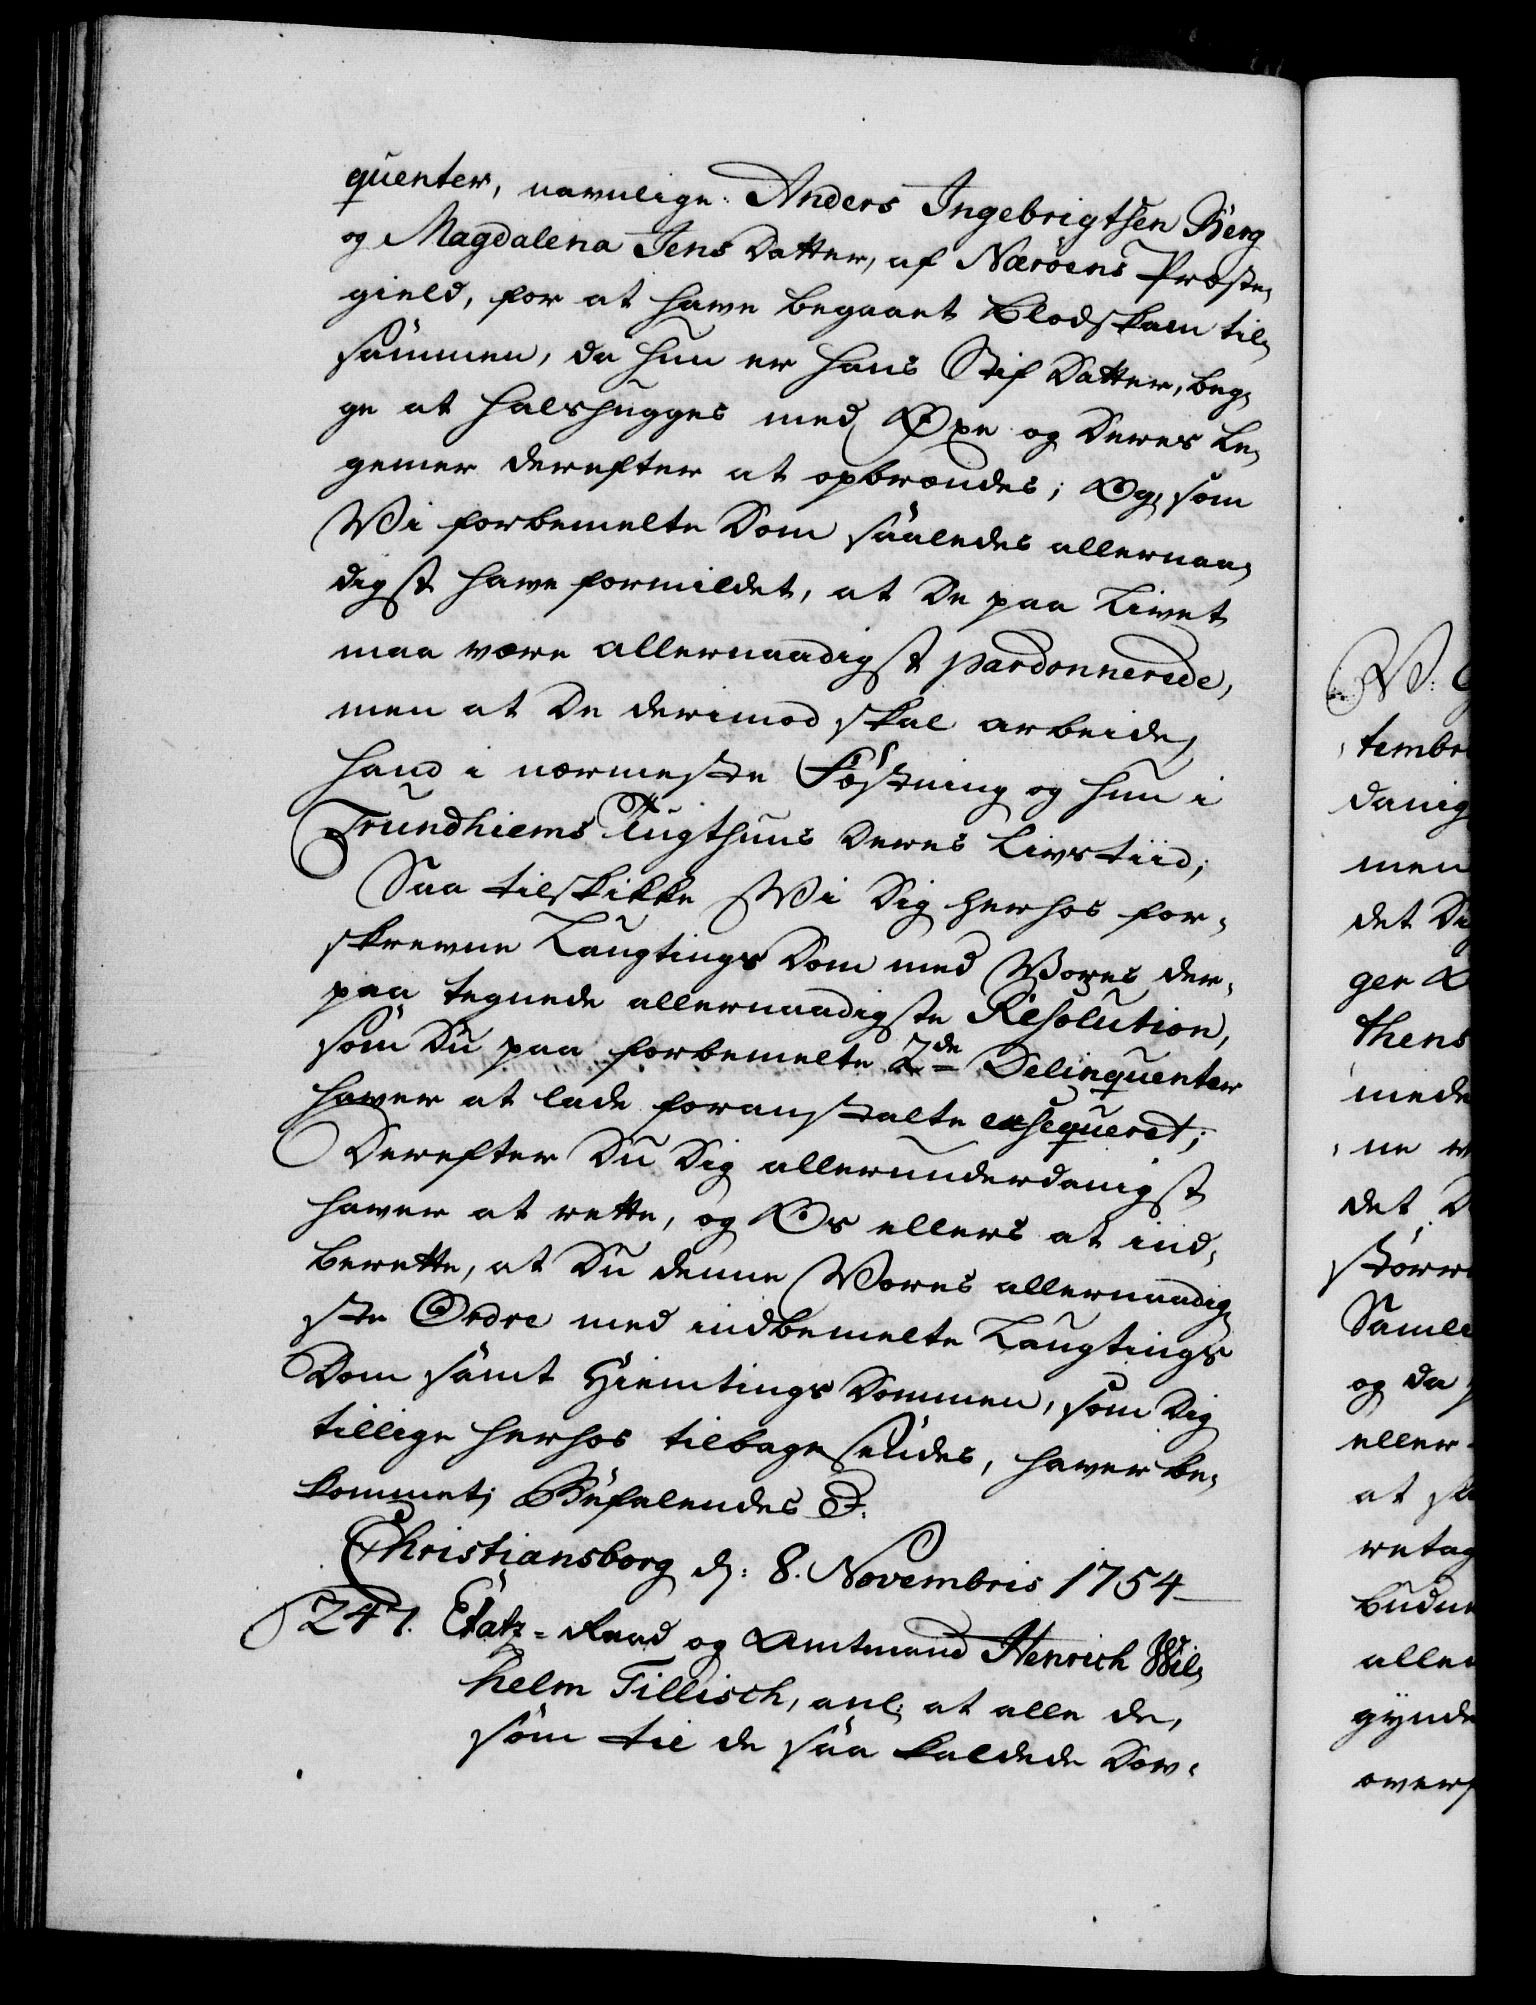 quenter, navnlige: Anders Ingebrigtsen Berg
og Magdalena Jens Datter, af Nærøens Præste,
gield, for at have begaaet Blodskam til,
sammen, da hun er hans Stif Datter, beg,
ge at halshugges med Øxe og deres Le,
gemer derefter at opbrændes; Og, som
Vi forbemelte Dom saaledes allernaa,
digst have formildet, at De paa Livet
maa være allernaadigst pardonnerede,
men at De derimod skal arbeide,
hand i nærmeste Fæstning og hun i
Trundhiems Tugthuus deres Livs tiid;
Saa tilskikke Vi Dig herhos for,
skrevne Laugtings Dom med Vores der,
paa tegnede allernaadigste Resolution,
som Du paa forbemelte 2de Delinquenter
haver at lade foranstalte exsequeret;
Derefter Du Dig allerunderdanigst
haver at rette, og Os ellers at ind,
berette, at Du denne Vores allernaadig,
ste Ordre med indbemelte Laugtings
Dom samt Hiemtings Dommen, som Dig
tillige herhos tilbagesendes, haver be,
kommet; Befalendes &.
Christiansborg d: 8. Novembris 1754
247. Etatz-Raad og Amtmand Henrich Wil,
helm Tillisch, anl: at alle de,
som til de saa kaldede Dov,
W:
tembr
danig
men
det
ger
thens
mede
ne
det
større
Samle
og da
eller
at
retag
budne
alle
gynde
over